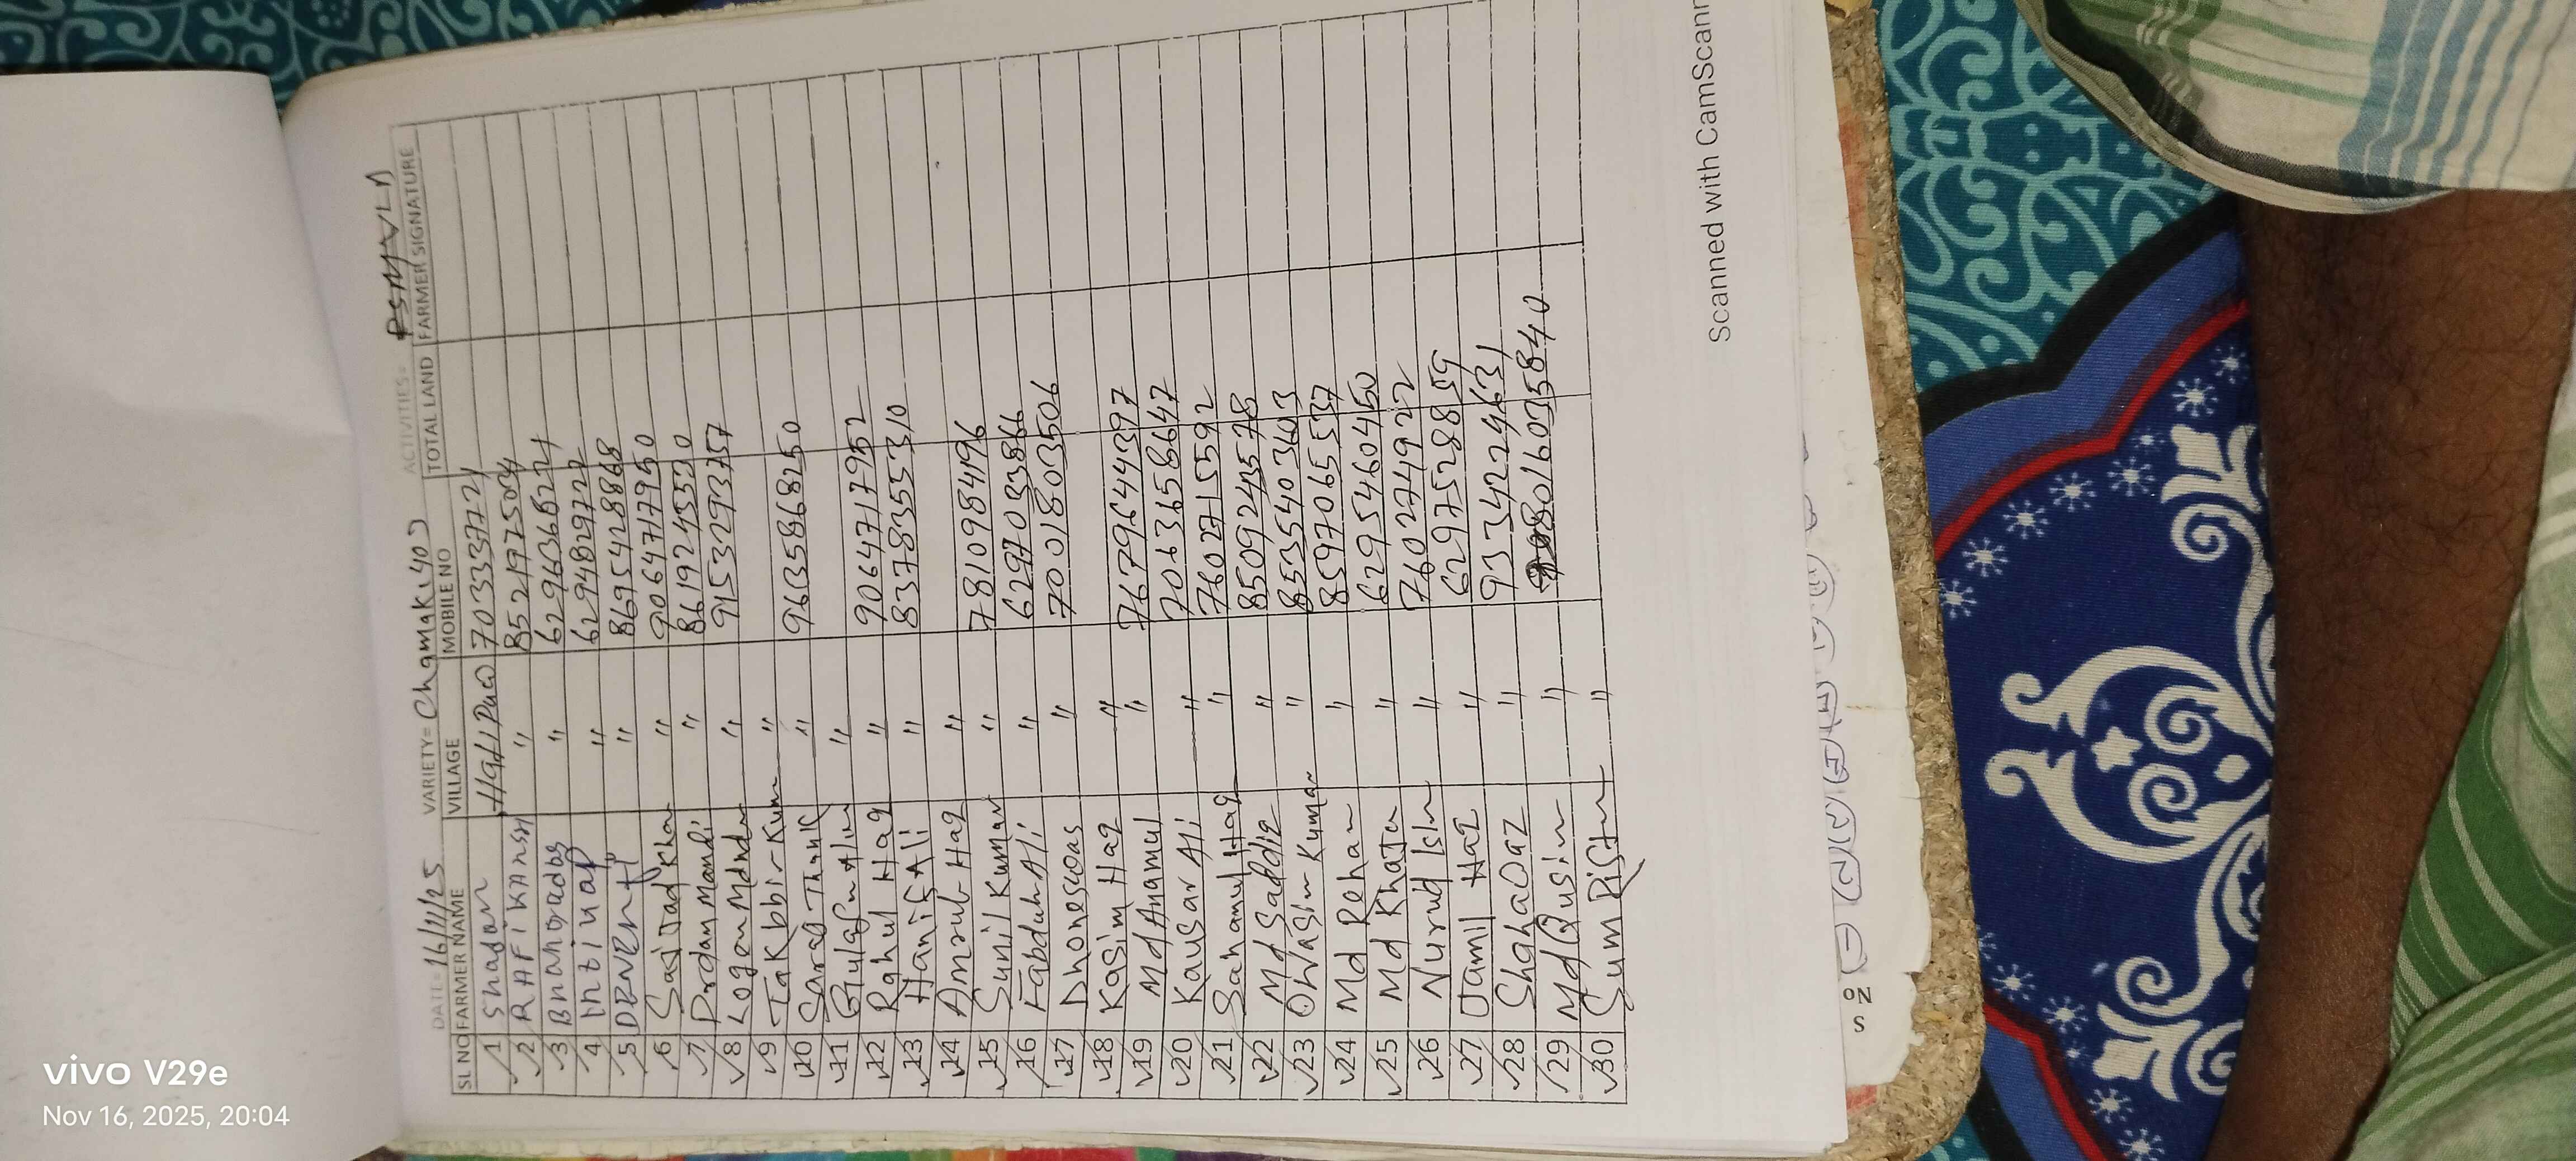 DATE=16/11/25 VARIETY= Chamak(40) ACTIVITIES=
SL NO FARMER NAME VILLAGE MOBILE NO TOTAL LAND FARMER SIGNATURE
1 Shadan 703337721
2 RAFIKANSM " 8521975504
3 Bhangradas " 6296368221
4 " 6294829722
5 " 8695428868
6 Sajjad Khan " 9064717950
7 Prdan Mandi " 8619245530
8 Logen Mdndu " 9153293757
9 Takbbir Kum "
10 Saraf " 9635868250
11 Gulafn Alim "
12 Rahul Haq " 9064717952
13 Hanif Ali " 8378355310
14 Amrul Haq "
15 Sunil Kumar " 7810984196
16 Fabduh Ali " 6297033866
17 Dhoneswas " 7001803506
18 Kasim Haq "
19 Md Anamul " 7679644397
20 Kausar Ali " 7063658647
21 Sahanul Haq " 7602715592
22 Md Saddiq " 8509243578
23 Owasim Kumar " 8535403603
24 Md Rehan " 8597065537
25 Md Khaja " 6295460450
26 Nurul Islm " 7602749922
27 Jamil Haq " 6297528859
28 Shahaoaz " 9334224631
29 Md Qusim " 8016035840
30 Sum "
Scanned with CamScann
S NO
vivo V29e
Nov 16, 2025, 20:04